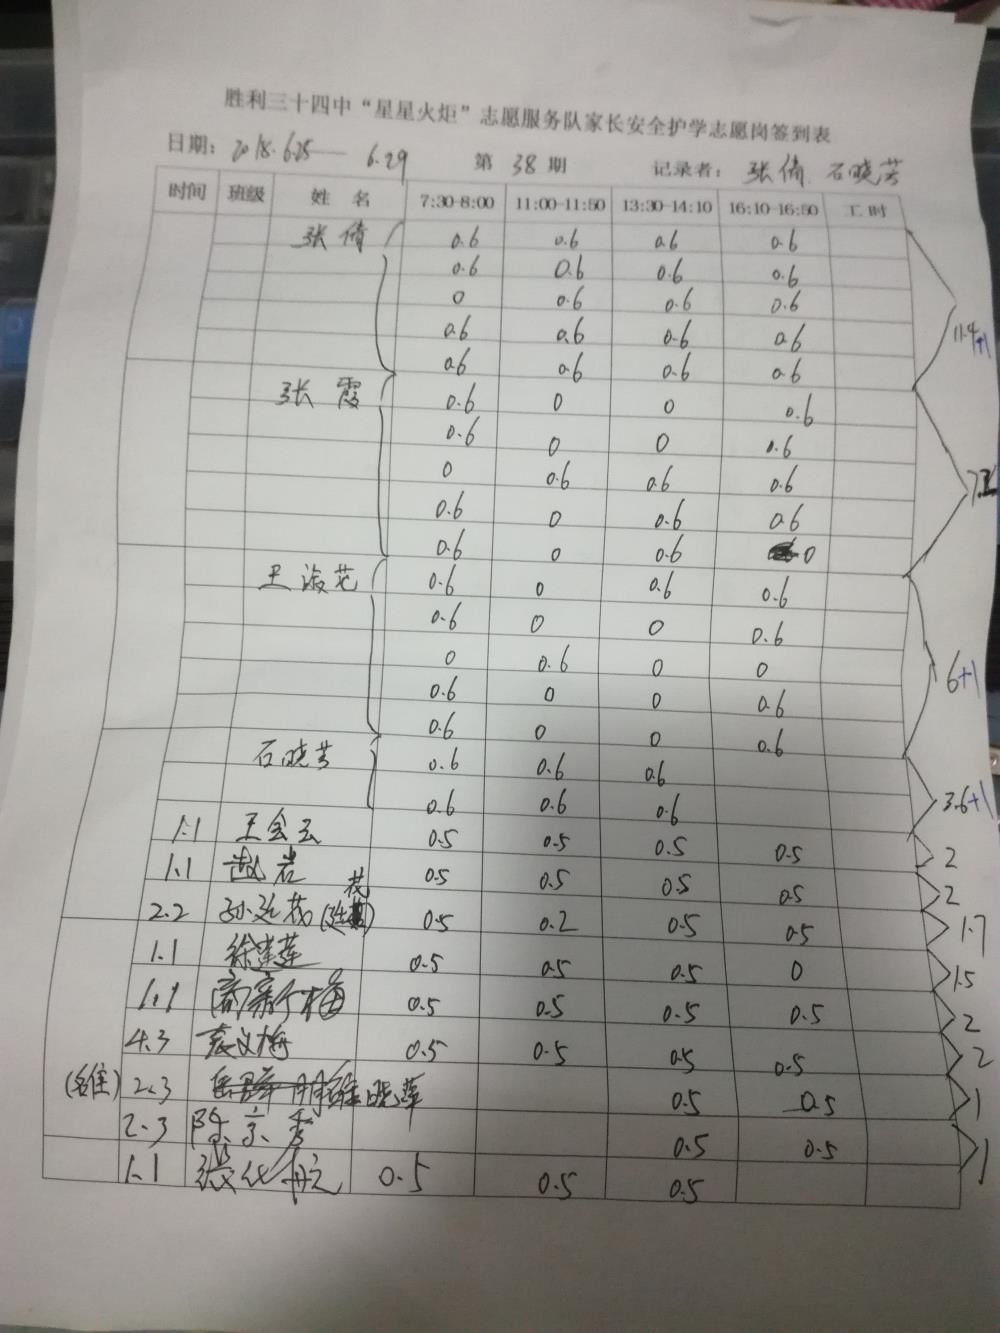 胜利三十四中“星星火炬”志愿服务队家长安全护学志愿岗签到表
日期：2018.6.25—6.29 第 38 期 记录者：张倩 石晓芳
时间 班级 姓 名 7:30-8:00 11:00-11:50 13:30-14:10 16:10-16:50 工时
张倩 0.6 0.6 0.6 0.6
0.6 0.6 0.6 0.6
0 0.6 0.6 0.6
0.6 0.6 0.6 0.6
0.6 0.6 0.6 0.6
11.4+1
张霞 0.6 0 0 0.6
0.6 0 0 0.6
0 0.6 0.6 0.6
0.6 0 0.6 0.6
0.6 0 0.6 0
王淑花 0.6 0 0.6 0.6
0.6 0 0 0.6
0 0.6 0 0
0.6 0 0 0.6
0.6 0 0 0.6
6+1
石晓芳 0.6 0.6 0.6
0.6 0.6 0.6
3.6+1
1.1 王会云 0.5 0.5 0.5 0.5 2
1.1 赵岩 0.5 0.5 0.5 0.5 2
2.2 0.5 0.2 0.5 0.5 1.7
1.1 徐莲 0.5 0.5 0.5 0 1.5
1.1 0.5 0.5 0.5 0.5 2
4.3 袁义梅 0.5 0.5 0.5 0.5 2
2.3 晓萍 0.5 0.5 1
2.3 陈京秀 0.5 0.5 1
1.1 张 0.5 0.5 0.5